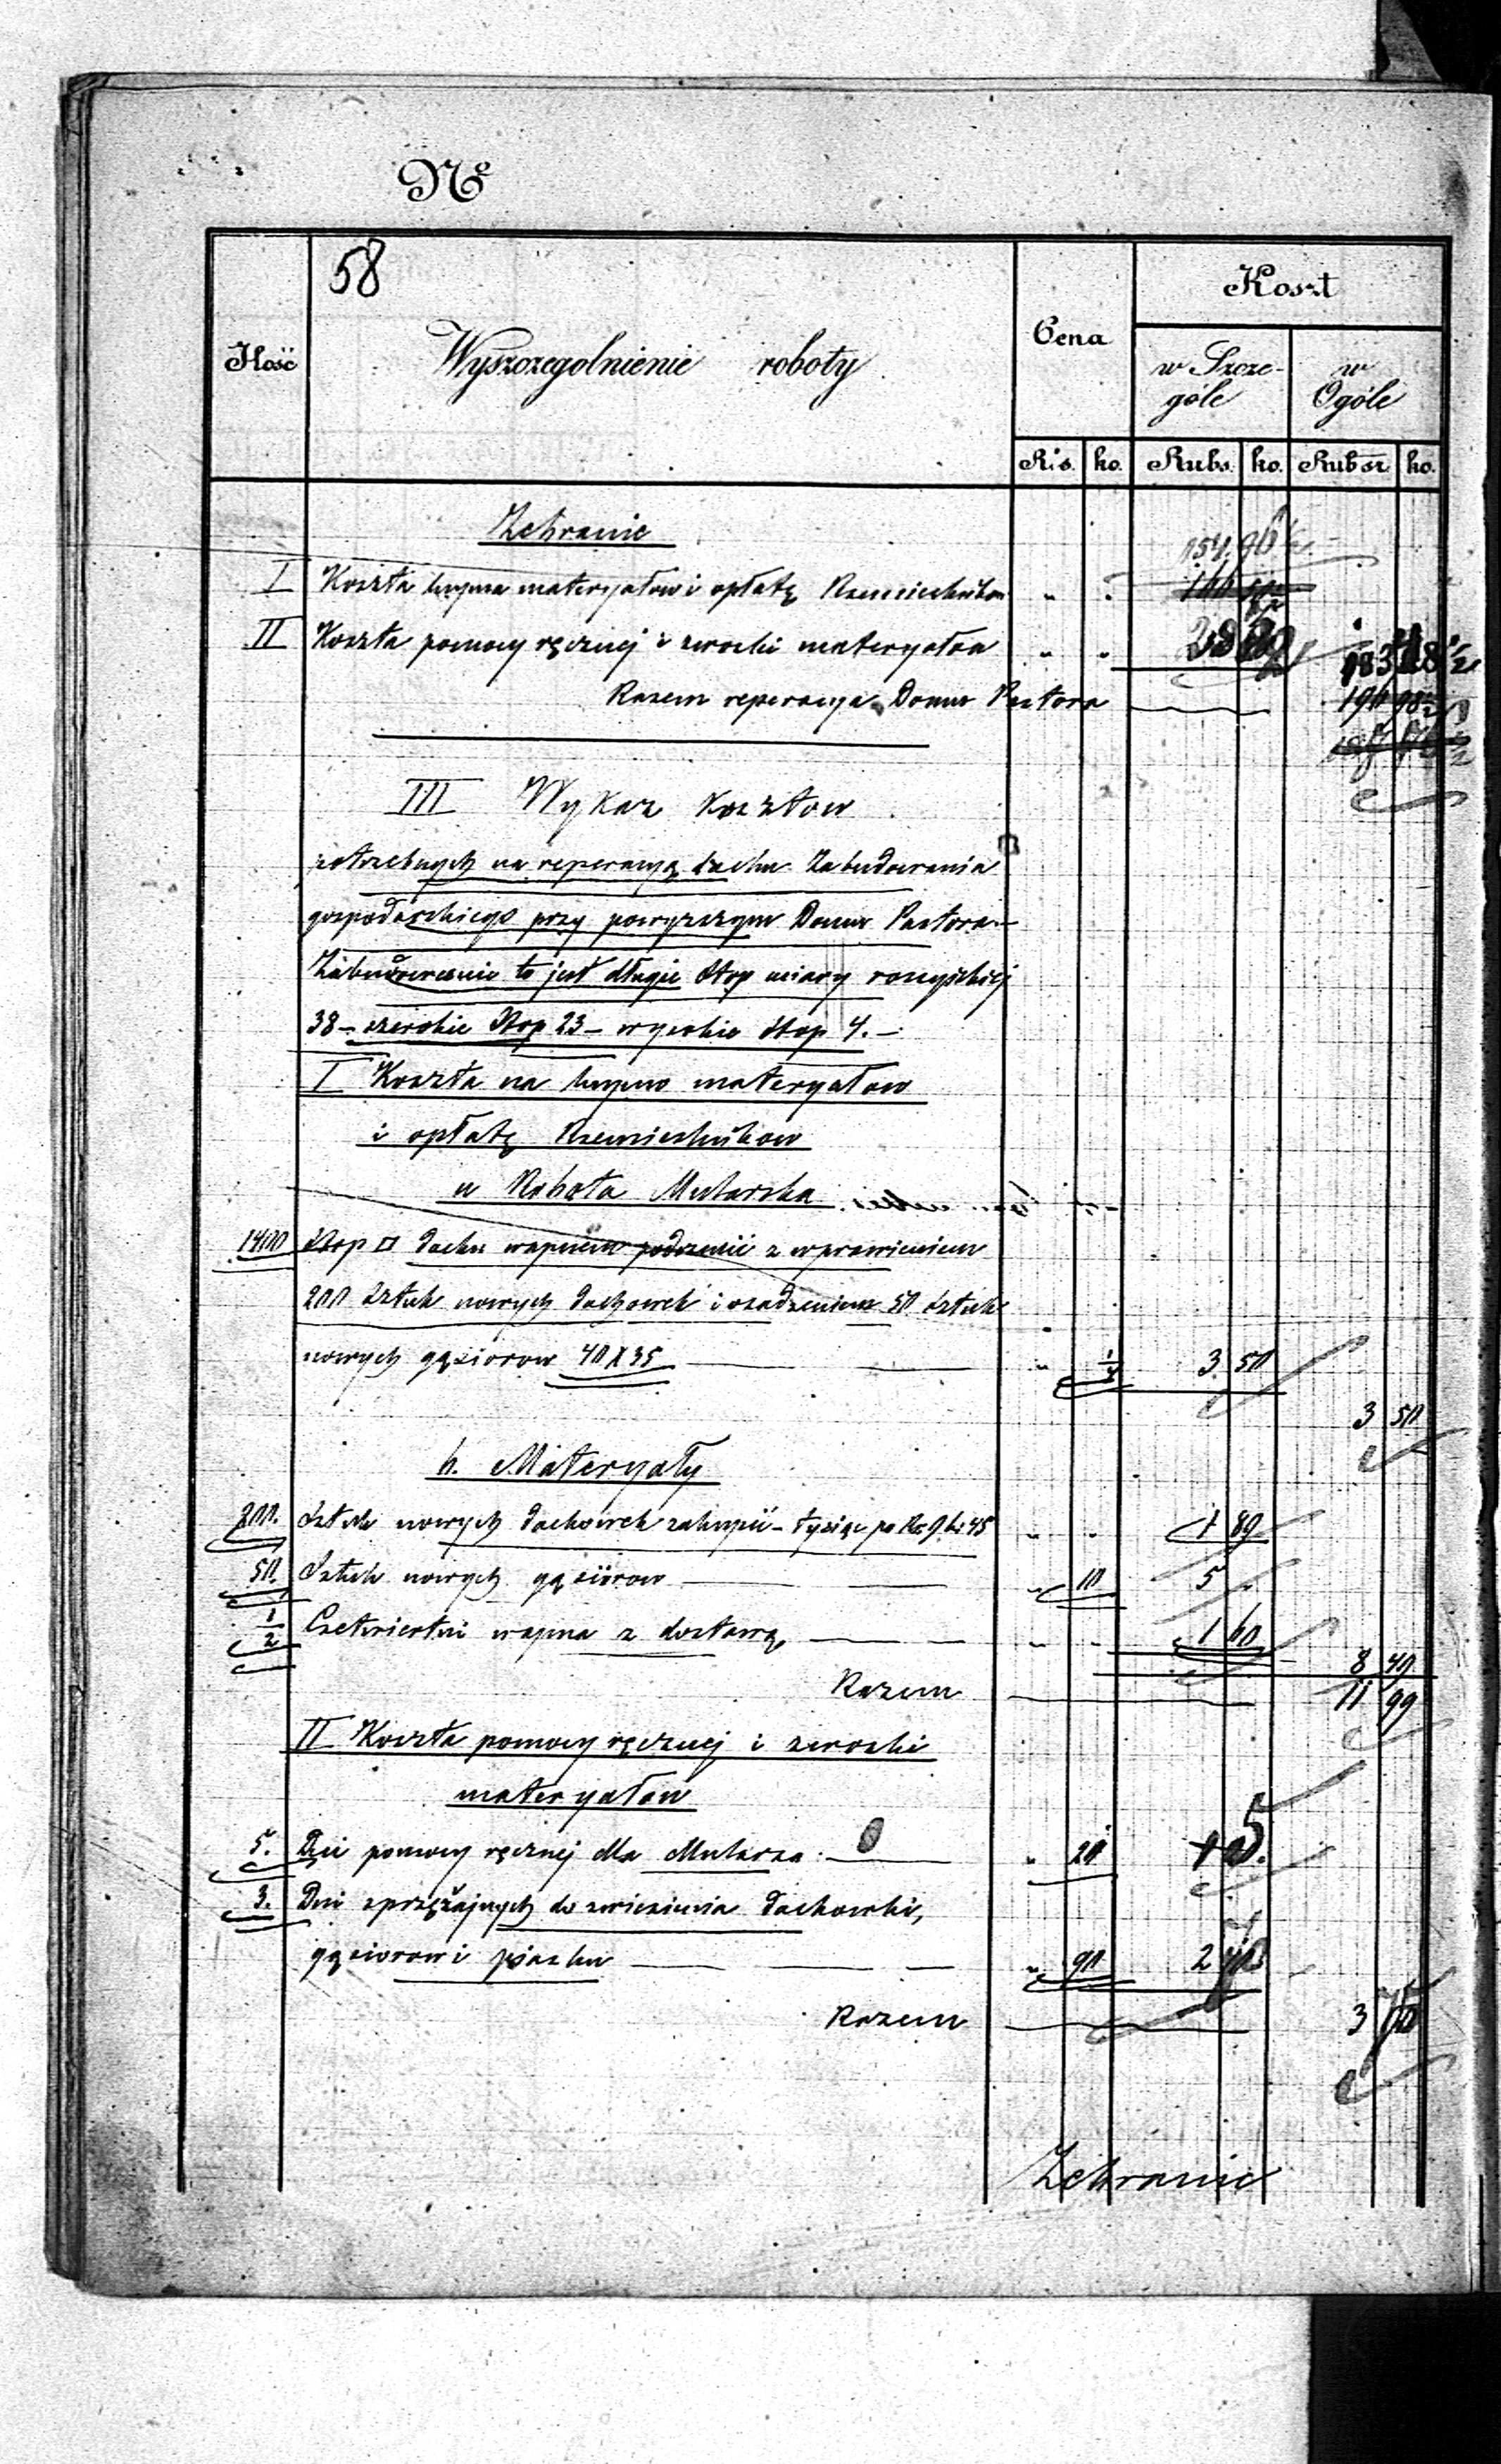 No
58
Ilość
Wyszczegolnienie roboty
Cena
Koszt
w Szcze-
góle
w
Ogóle
R.s. ko. Rubs. ko. Rubsr ko.
Zebranie
154. 96½
I Koszta kupna materyałow i opłatę Rzemieslnikow " "
II Koszta pomocy ręcznej i zwozki materyałow " "
Razem reperacya Domu Pastora
III Wykaz Kosztow
potrzebnych na reperacyą dachu Zabudowania
gospodarskiego przy powyższym Domu Pastora.—
Zabudowanie to jest długie Stop miary rossyiskiej
38 – szerokie Stop 23 – wysokie Stop 4. –
I Koszta na kupno materyałow
i opłatę Rzemieslnikow
a Robota Mularska
1400 Stop □ dachu wapnem podrzucić z wprawieniem
200 Sztuk nowych dachowek i osadzeniem 50 Sztuk
nowych gąsiorow 40 X 35 " ¼ 3 50
3 50
b. Materyały
200. Sztuk nowych dachowek zakupić – tysiąc po Rs 9 k. 45 " " 1 89
50. Sztuk nowych gąsiorow " 10 5 "
½ Czetwiertni wapna z dostawą " " 1 60
8 49
Razem 11 99
II Koszta pomocy ręcznej i zwozki
materyałow
5. Dni pomocy ręcznej dla Mularza " 20
3. Dni sprzężajnych do zwiezienia dachowki,
gąsiorow i piasku " 90 2
Razem 3
Zebranie